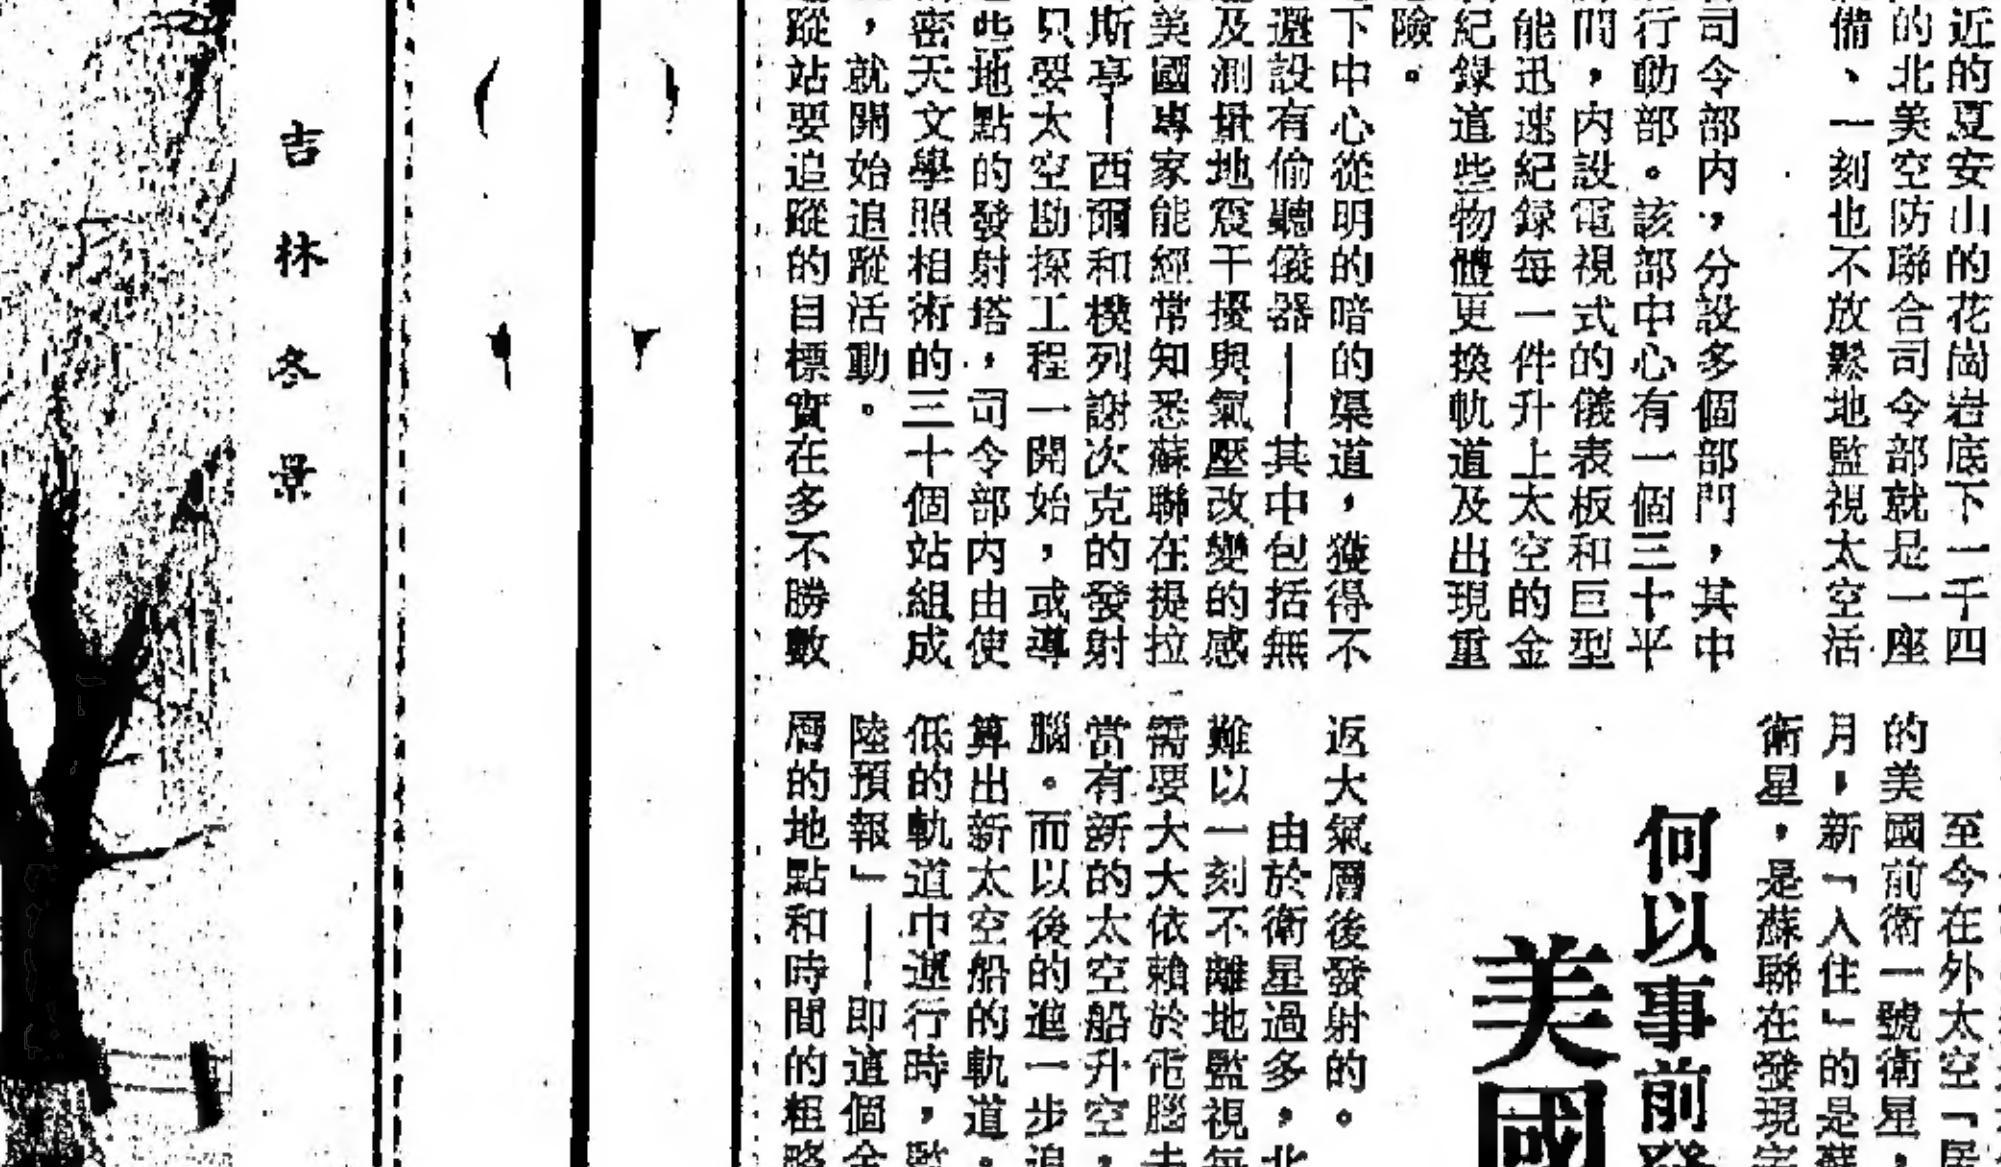 近的夏安山的花崗岩底下一千四
的北美空防聯合司令部就是一座
備、一刻也不放鬆地監視太空活
司令部内，分設多個部門，其中
行動部。該部中心有一個三十平
間，内設電視式的儀表板和巨型
能迅速紀録每一件升上太空的金
紀録這些物體更換軌道及出現重
險。
下中心從明的暗的渠道，獲得不
還設有偷聽儀器——其中包括無
及測量地震干擾與氣壓改變的感
美國專家能經常知悉蘇聯在提拉
斯亭—西爾和樸列謝次克的發射
只要太空勘探工程一開始，或導
些地點的發射塔，司令部内由使
密天文學照相術的三十個站組成
，就開始追蹤活動。
蹤站要追蹤的目標實在多不勝數
至今在外太空「居
的美國前衛一號衛星，
月，新「入住」的是蘇
衛星，是蘇聯在發現
何以事前發
美國
返大氣層後發射的。
由於衛星過多，北
難以一刻不離地監視每
需要大大依賴於電腦
當有新的太空船升空，
腦。而以後的進一步追
算出新太空船的軌道。
低的軌道中運行時，監
陸預報」——即這個金
層的地點和時間的粗略
吉林冬景